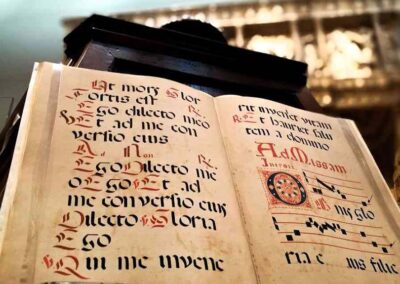 Et mors
fortis est
Ego dilecto meo
Et ad me con
versio eius
Ad Non R
Ego Dilecto me
o Ego Et ad
me conversio eius
Dilecto Gloria
Ego
Qui me invene
rit inveniet vitam
R Et hauriet salu
tem a domino
Ad Missam
Introit
O mnis glo
ria e us filie